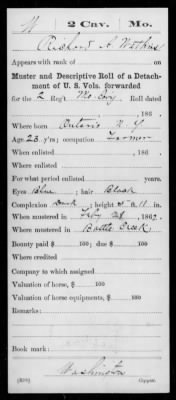 W 2 Cav. Mo.
Richard A. Watkins
Appears with rank of on
Muster and Descriptive Roll of a Detach-
ment of U. S. Vols. forwarded
for the 2 Reg't Mo. Cav. Roll dated
, 186 .
Where born Ontario N. Y.
Age 23 y'rs; occupation Farmer
When enlisted , 186 .
Where enlisted
For what period enlisted years.
Eyes Blue ; hair Black
Complexion Dark ; height 5 ft. 11 in.
When mustered in , 1862.
Where mustered in Battle Creek
Bounty paid $ 100; due $ 100
Where credited
Company to which assigned
Valuation of horse, $ 100
Valuation of horse equipments, $ 100
Remarks:
Book mark:
Washington
(339) Copyist.